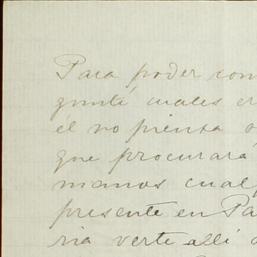 Para poder con
gunté cuales er
él no piensa o
que procurará
manos cual
presente en Pa
ria verte alli